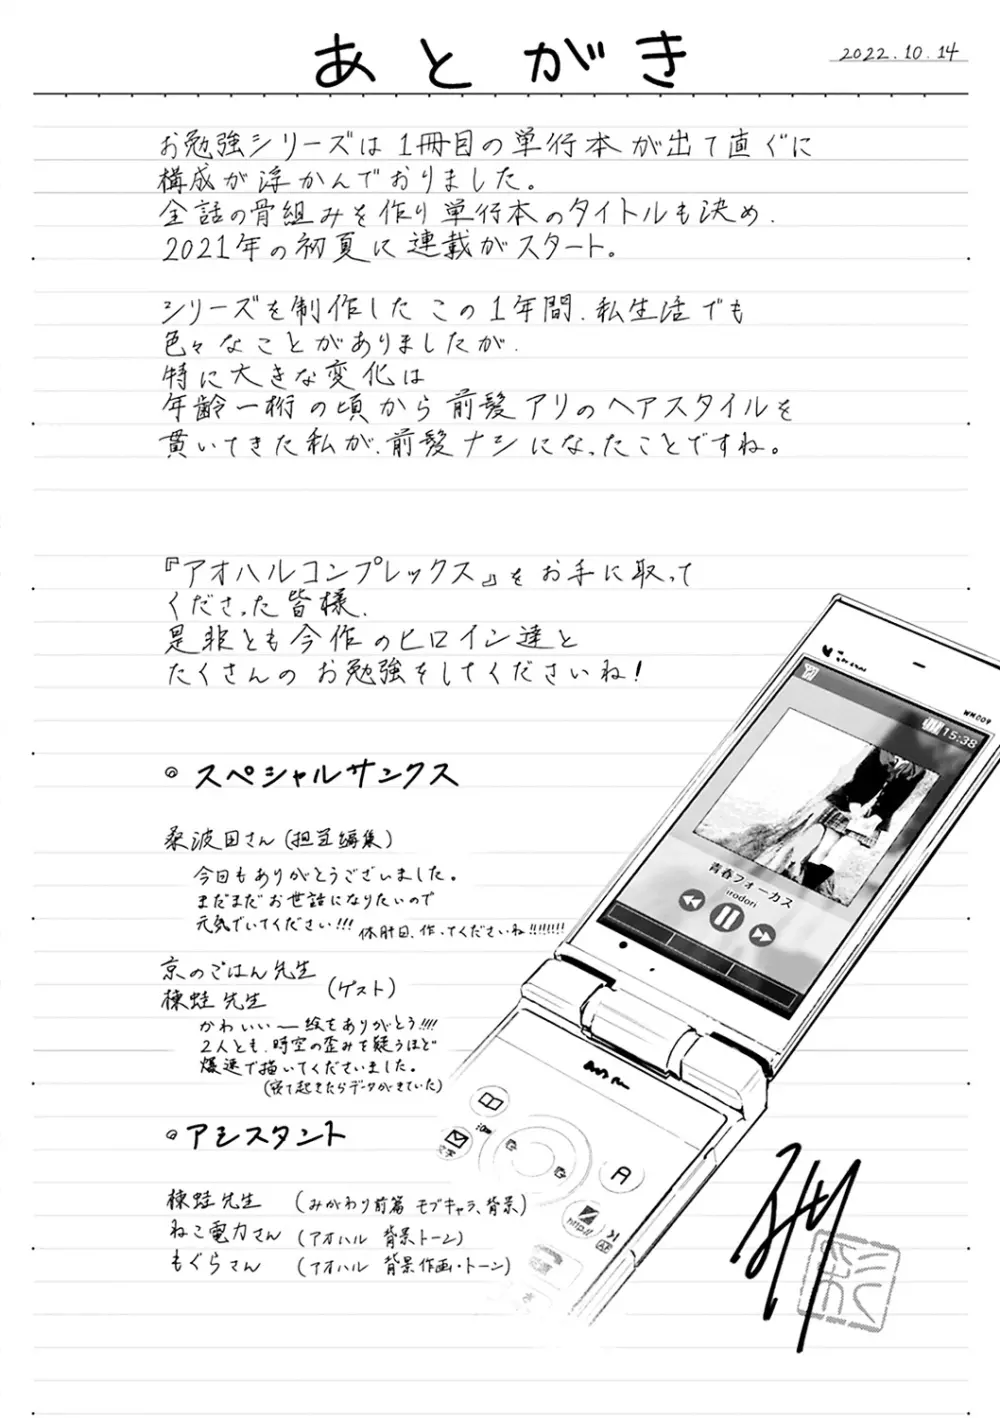 あとがき
2022.10.14
お勉強シリーズは1冊目の単行本が出て直ぐに
構成が浮かんでおりました。
全話の骨組みを作り単行本のタイトルも決め、
2021年の初夏に連載がスタート。
シリーズを制作したこの1年間、私生活でも
色々なことがありましたが、
特に大きな変化は
年齢一桁の頃から前髪アリのヘアスタイルを
貫いてきた私が、前髪ナシになったことですね。
『アオハルコンプレックス』をお手に取って
くださった皆様、
是非とも今作のヒロイン達と
たくさんのお勉強をしてくださいね!
◎スペシャルサンクス
桑波田さん(担当編集)
今回もありがとうございました。
まだまだお世話になりたいので
元気でいてください!!! 休肝日、作ってくださいね!!!!!!!
京のごはん先生
棟蛙先生
(ゲスト)
かわいい一絵をありがとう!!!!
2人とも、時空の歪みを疑うほど
爆速で描いてくださいました。
(寝て起きたらデータがきていた)
◎アシスタント
棟蛙先生 (みがわり前篇 モブキャラ、背景)
ねこ電力さん (アオハル 背景トーン)
もぐらさん (アオハル 背景作画・トーン)
WM009
15:38
青春フォーカス
irodori
文字
A
http://